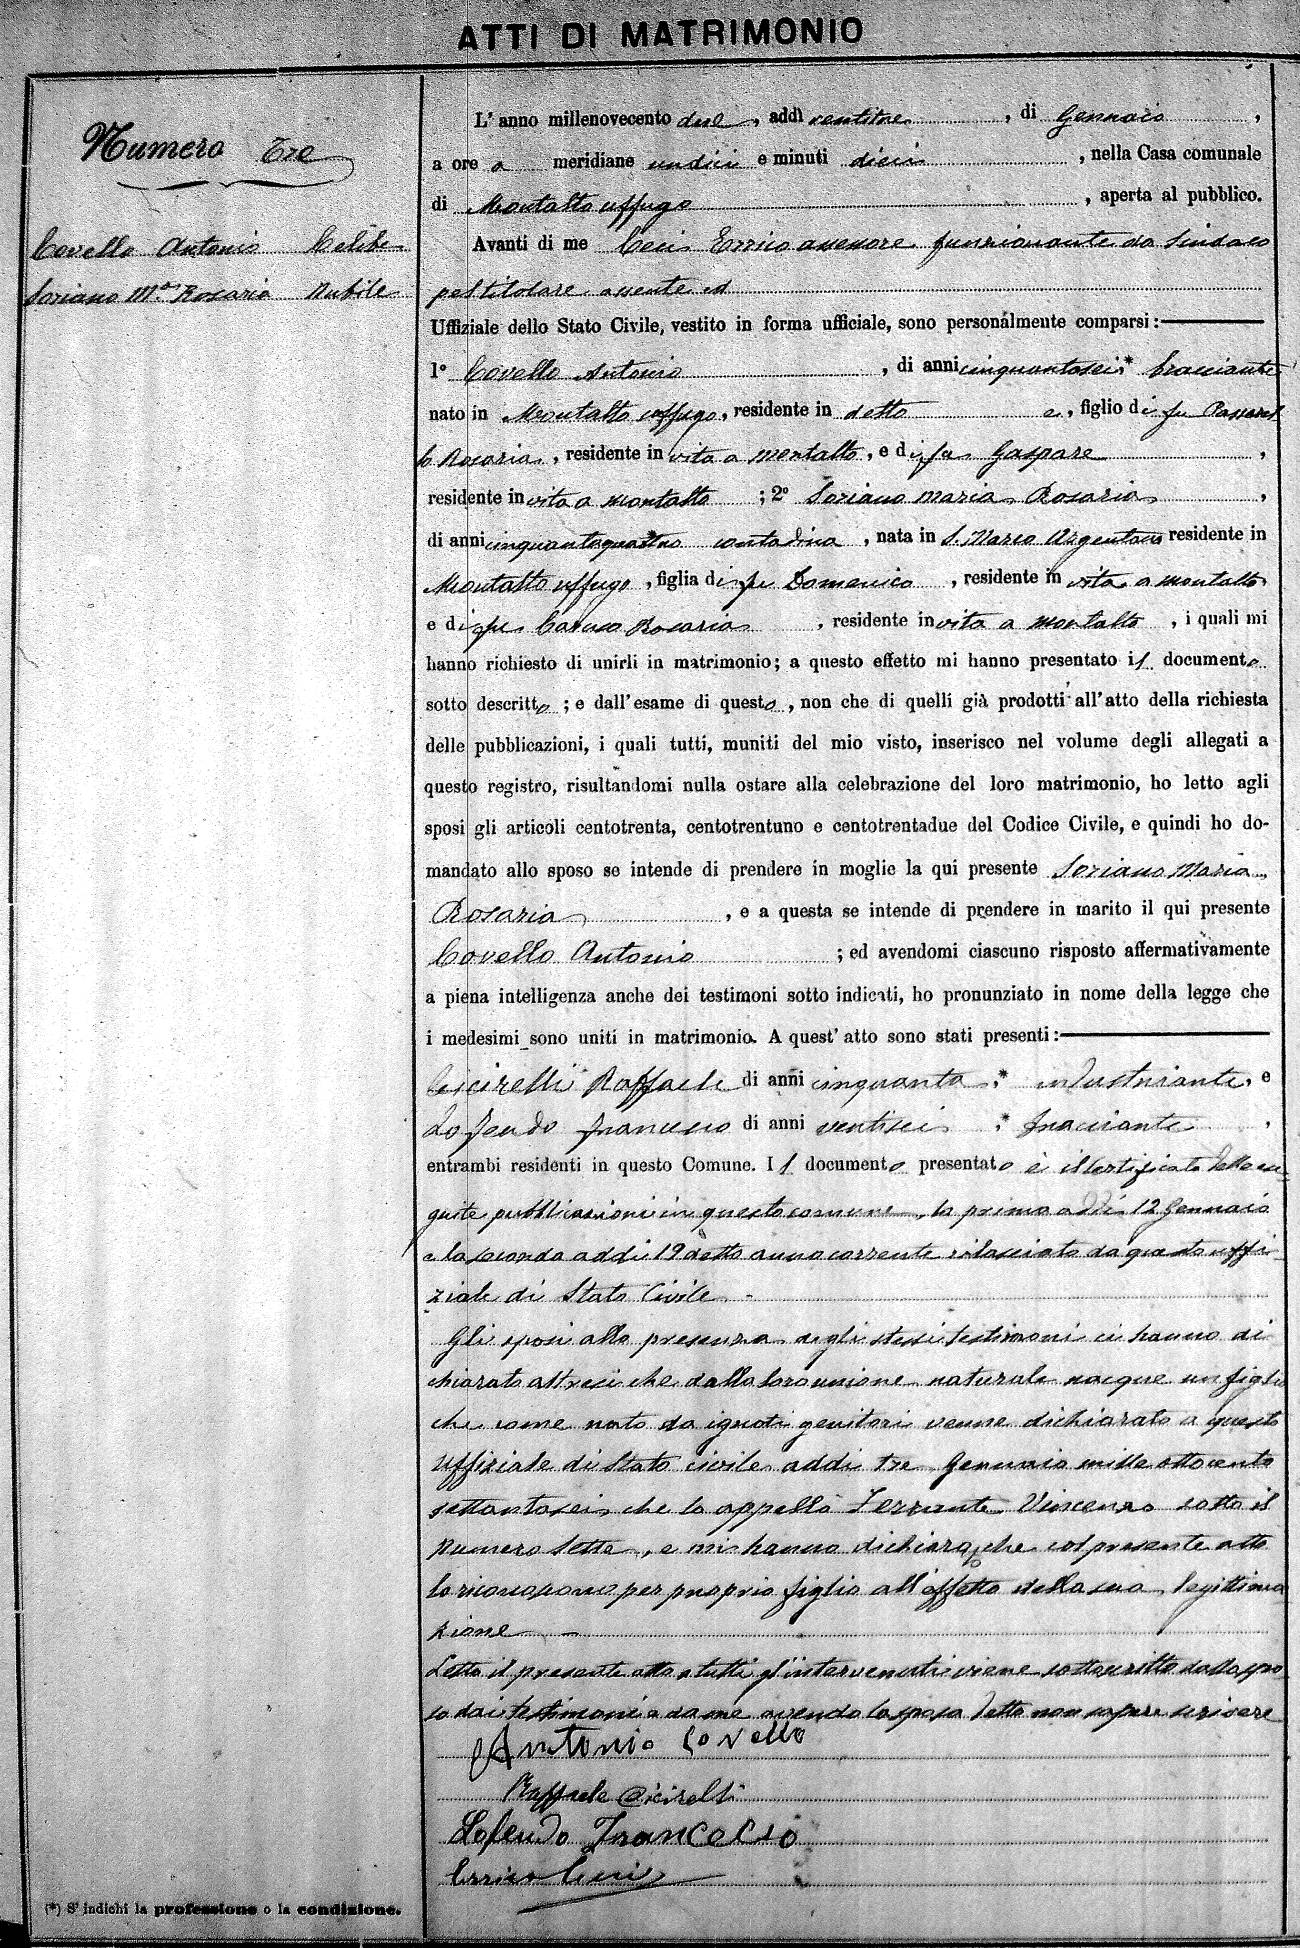 ATTI DI MATRIMONIO
Numero Tre
Covello Antonio Celibe
Soriano M.a Rosaria Nubile
L'anno millenovecento due, addì ventitre, di Gennaio,
a ore a meridiane undici e minuti dieci, nella Casa comunale
di Montalto uffugo, aperta al pubblico.
Avanti di me Ceci Errico assessore funzionante da Sindaco
pel titolare assente ed
Uffiziale dello Stato Civile, vestito in forma ufficiale, sono personalmente comparsi:
1° Covello Antonio, di anni cinquantasei,* bracciante
nato in Montalto uffugo, residente in detto, figlio di fu Passarel
lo Rosaria, residente in vita a Montalto, e di fu Gaspare,
residente in vita a Montalto; 2° Soriano Maria Rosaria,
di anni cinquantaquattro* contadina, nata in S. Marco Argentano residente in
Montalto uffugo, figlia di fu Domenico, residente in vita a Montalto
e di fu Caruso Rosaria, residente in vita a Montalto, i quali mi
hanno richiesto di unirli in matrimonio; a questo effetto mi hanno presentato il documento
sotto descritto; e dall'esame di questo, non che di quelli già prodotti all'atto della richiesta
delle pubblicazioni, i quali tutti, muniti del mio visto, inserisco nel volume degli allegati a
questo registro, risultandomi nulla ostare alla celebrazione del loro matrimonio, ho letto agli
sposi gli articoli centotrenta, centotrentuno e centotrentadue del Codice Civile, e quindi ho do-
mandato allo sposo se intende di prendere in moglie la qui presente Soriano Maria
Rosaria, e a questa se intende di prendere in marito il qui presente
Covello Antonio; ed avendomi ciascuno risposto affermativamente
a piena intelligenza anche dei testimoni sotto indicati, ho pronunziato in nome della legge che
i medesimi sono uniti in matrimonio. A quest'atto sono stati presenti:
Cicirelli Raffaele di anni cinquanta,* industriante, e
Lo Feudo Francesco di anni ventisei,* bracciante,
entrambi residenti in questo Comune. Il documento presentato è il certificato delle ese
guite pubblicazioni in questo comune, la prima addì 12 Gennaio
e la seconda addì 19 detto anno corrente rilasciato da questo uffi
ziale di Stato Civile.
Gli sposi alla presenza degli stessi testimoni ci hanno di
chiarato altresì che dalla loro unione naturale nacque un figlio
che come nato da ignoti genitori venne dichiarato a questo
Uffiziale di Stato civile addì tre Gennaio mille ottocento
settantasei che lo appellò Ferrante Vincenzo sotto il
Numero Sette, e mi hanno dichiarato che col presente atto
lo riconoscono per proprio figlio all'effetto della sua legittima
zione
Letto il presente atto a tutti gl'intervenuti viene sottoscritto dallo spo
so dai testimoni e da me avendo la sposa detto non sapere scrivere
Antonio Covello
Raffaele Cicirelli
Lofeudo Francesco
Errico Ceci
(*) S'indichi la professione o la condizione.